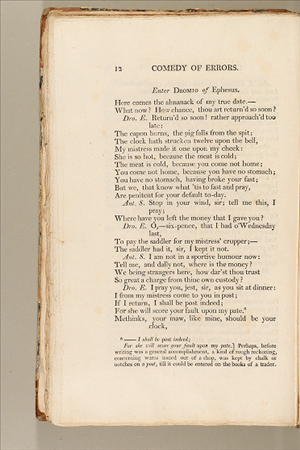 12 COMEDY OF ERRORS.
Enter DROMIO of Ephesus.
Here comes the almanack of my true date.—
What now? How chance, thou art return'd so soon?
Dro. E. Return'd so soon! rather approach'd too
late:
The capon burns, the pig falls from the spit;
The clock hath strucken twelve upon the bell,
My mistress made it one upon my cheek:
She is so hot, because the meat is cold;
The meat is cold, because you come not home;
You come not home, because you have no stomach;
You have no stomach, having broke your fast;
But we, that know what 'tis to fast and pray,
Are penitent for your default to-day.
Ant. S. Stop in your wind, sir; tell me this, I
pray;
Where have you left the money that I gave you?
Dro. E. O,—six-pence, that I had o'Wednesday
last,
To pay the saddler for my mistress' crupper;—
The saddler had it, sir, I kept it not.
Ant. S. I am not in a sportive humour now:
Tell me, and dally not, where is the money?
We being strangers here, how dar'st thou trust
So great a charge from thine own custody?
Dro. E. I pray you, jest, sir, as you sit at dinner:
I from my mistress come to you in post;
If I return, I shall be post indeed;
For she will score your fault upon my pate.*
Methinks, your maw, like mine, should be your
clock,
* —— I shall be post indeed;
For she will score your fault upon my pate.] Perhaps, before
writing was a general accomplishment, a kind of rough reckoning,
concerning wares issued out of a shop, was kept by chalk or
notches on a post, till it could be entered on the books of a trader.